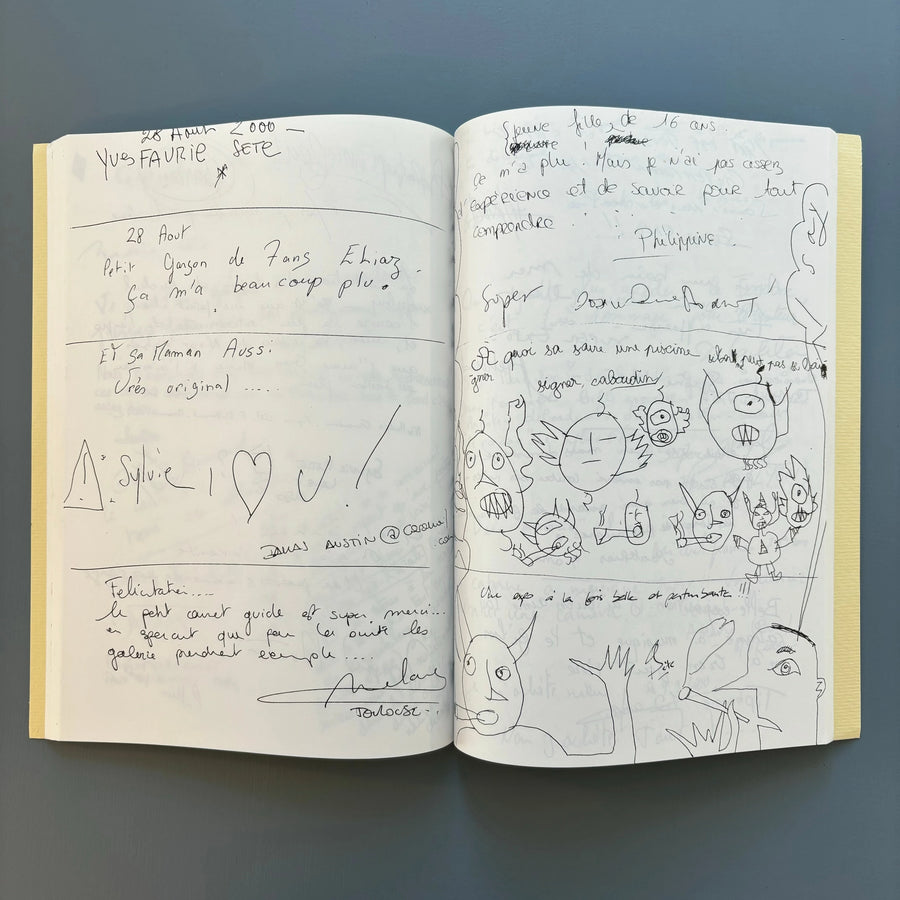 28 Août 2000 —
YVES FAURIE SETE
28 Aout
Petit Garçon de 7 ans
ça m'a beaucoup plu.
Et sa Maman Aussi
Très original .....
Sylvie I ♡ U !
AUSTIN @
.com
Felicitation....
le petit carnet guide est super merci...
en que les
galerie prendront exemple ....
Toulouse..
jeune fille, de 16 ans.
!
Ça m'a plu. Mais je n'ai pas assez
d'expérience et de savoir pour tout
comprendre
Philippine.
Super
A quoi sa saire une piscine pas se bai
gner signer, cabaudin
Une expo à la fois belle et perturbante !!!